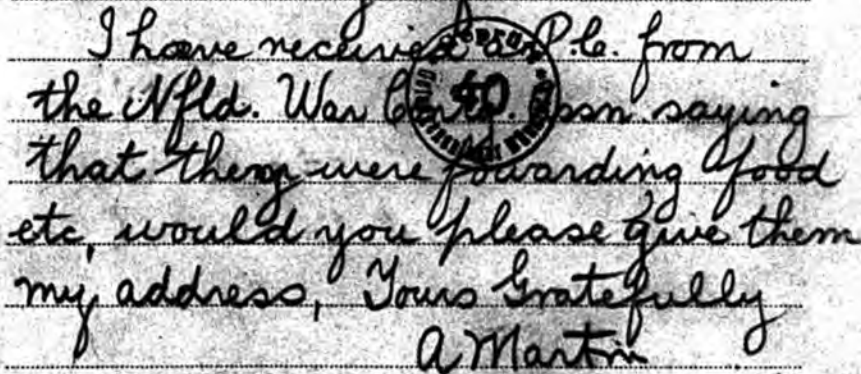 I have received a P.C. from
the Nfld. War Assn. saying
40
that they were fowarding food
etc, would you please give them
my address, Yours Gratefully
A Martin